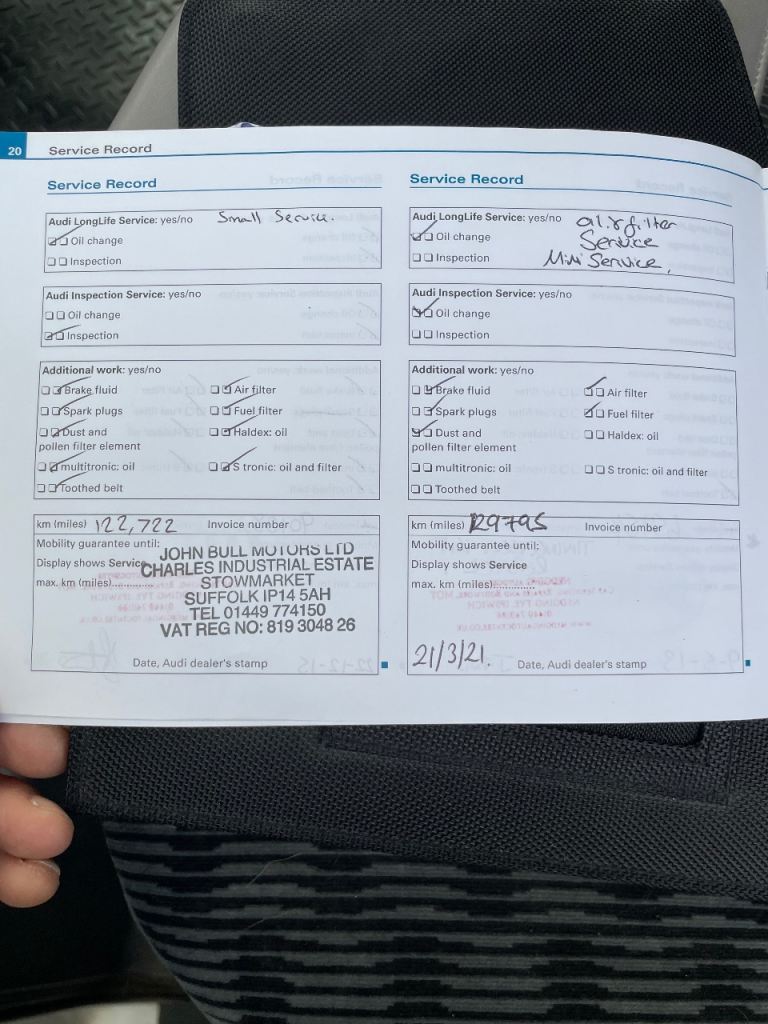 20 Service Record
Service Record
Audi LongLife Service: yes/no Small Service.
Oil change
Inspection
Audi Inspection Service: yes/no
Oil change
Inspection
Additional work: yes/no
Brake fluid Air filter
Spark plugs Fuel filter
Dust and Haldex: oil
pollen filter element
multitronic: oil S tronic: oil and filter
Toothed belt
km (miles) 122,722 Invoice number
Mobility guarantee until:
Display shows Service
max. km (miles)
JOHN BULL MOTORS LTD
CHARLES INDUSTRIAL ESTATE
STOWMARKET
SUFFOLK IP14 5AH
TEL 01449 774150
VAT REG NO: 819 3048 26
Date, Audi dealer's stamp
Service Record
Audi LongLife Service: yes/no
Oil change filter
Service
Inspection Mini Service,
Audi Inspection Service: yes/no
Oil change
Inspection
Additional work: yes/no
Brake fluid Air filter
Spark plugs Fuel filter
Dust and Haldex: oil
pollen filter element
multitronic: oil S tronic: oil and filter
Toothed belt
km (miles) 129795 Invoice number
Mobility guarantee until:
Display shows Service
max. km (miles)
21/3/21. Date, Audi dealer's stamp